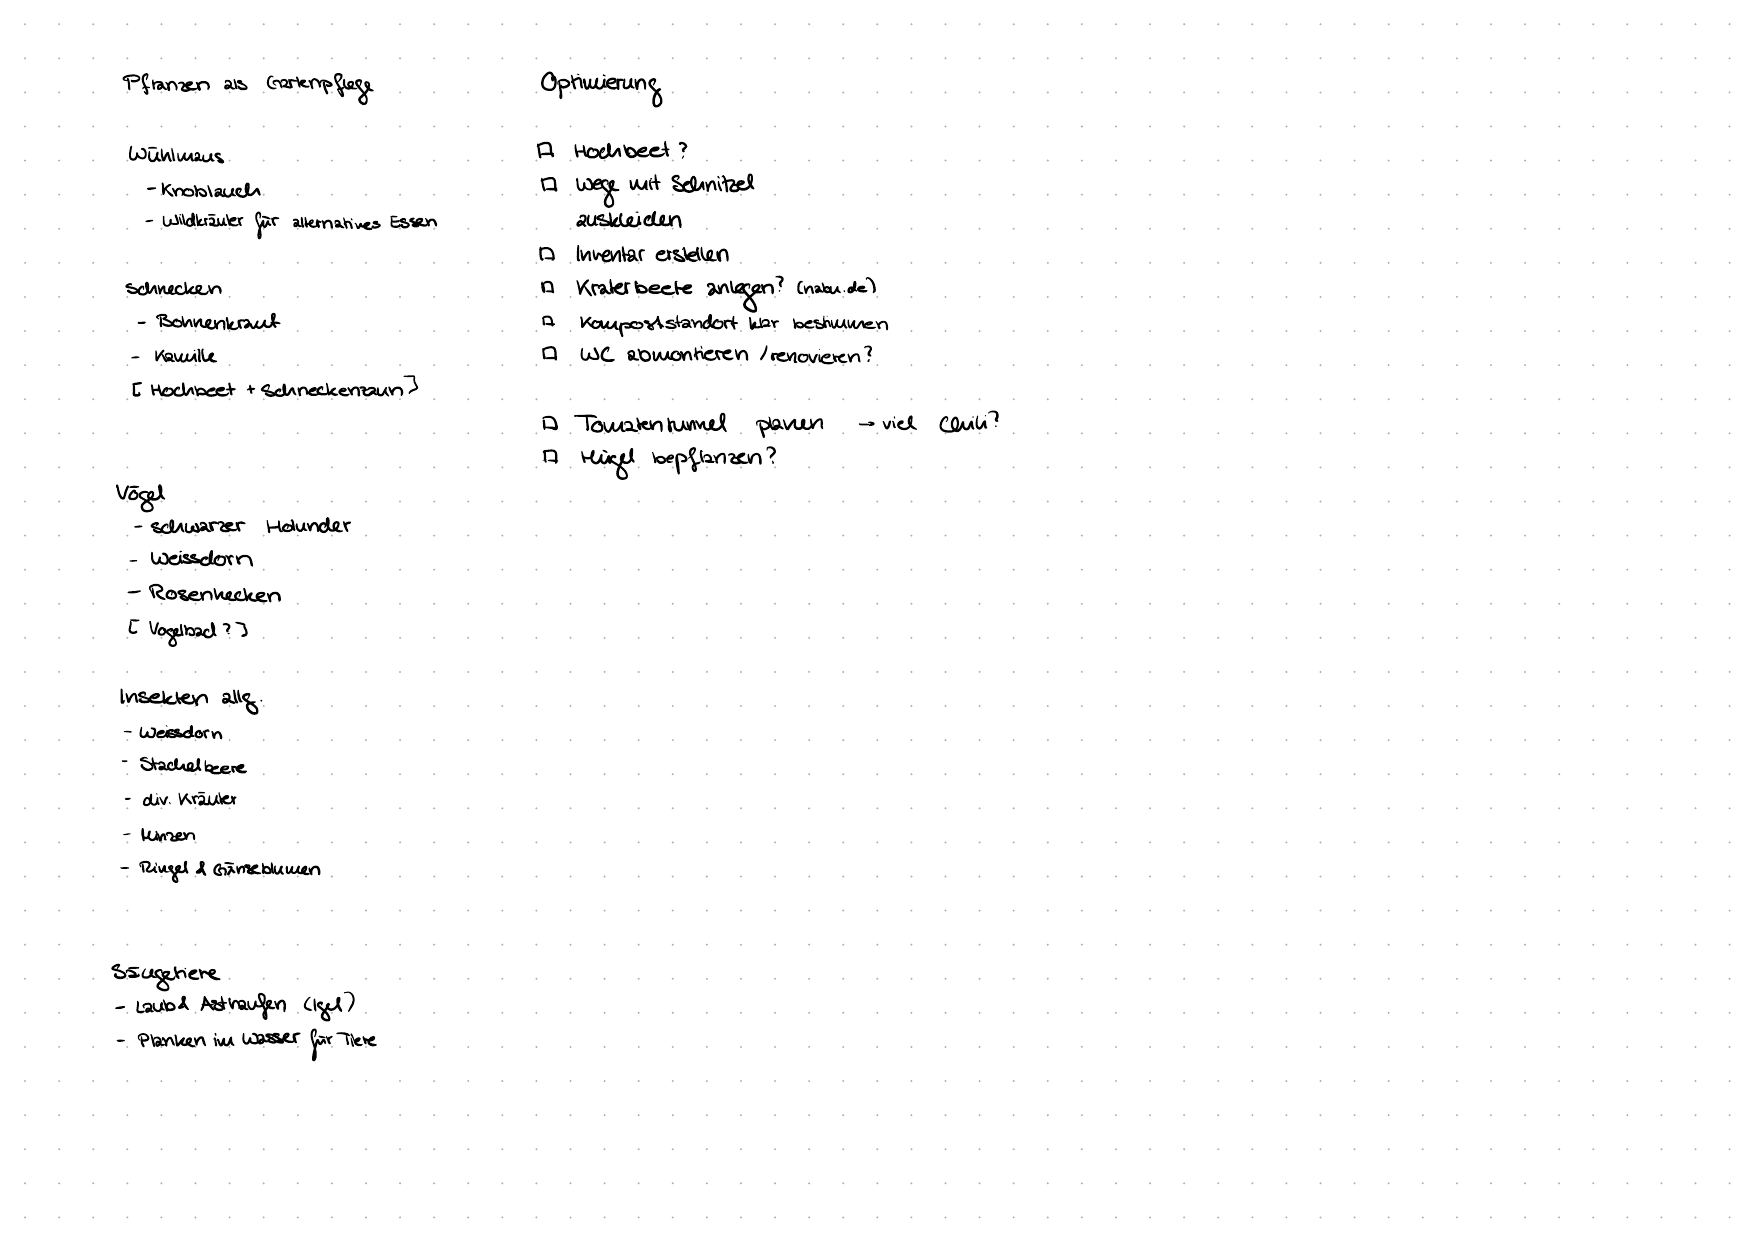 Pflanzen als Gartenpflege
Wühlmaus
- Knoblauch
- Wildkräuter für alternatives Essen
Schnecken
- Bohnenkraut
- Kamille
[ Hochbeet + Schneckenzaun ]
Vögel
- schwarzer Holunder
- Weissdorn
- Rosenhecken
[ Vogelbad ? ]
Insekten allg.
- Weissdorn
- Stachelbeere
- div. Kräuter
- Minzen
- Ringel & Gänseblumen
Säugetiere
- Laub & Asthaufen (Igel)
- Planken im Wasser für Tiere
Optimierung
□ Hochbeet ?
□ Wege mit Schnitzel
auskleiden
□ Inventar erstellen
□ Kraterbeete anlegen? (nabu.de)
□ Kompoststandort klar bestimmen
□ WC abmontieren / renovieren?
□ Tomatentunnel planen → viel Chili?
□ Hügel bepflanzen?